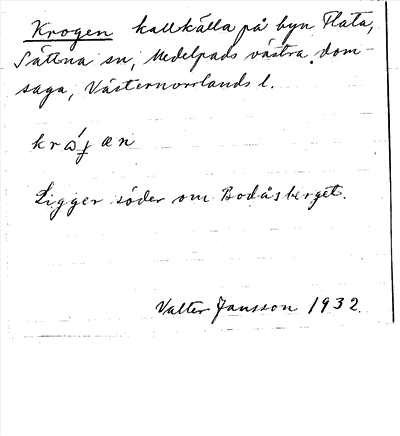 Krogen kallkälla på byn Flata,
Sättna sn, Medelpads västra dom-
saga, Västernorrlands l.
Ligger söder om Bodåsberget.
Valter Jansson 1932.